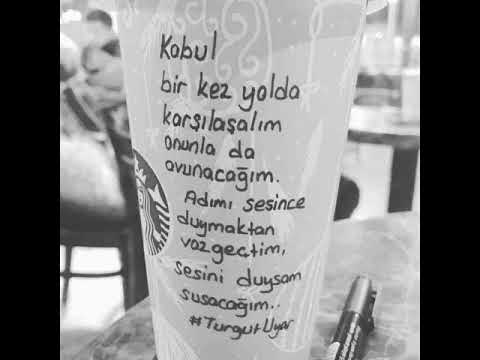 Kabul
bir kez yolda
karşılaşalım
onunla da
avunacağım.
Adımı sesince
duymaktan
vazgeçtim,
sesini duysam
susacağım..
#TurgutUyar